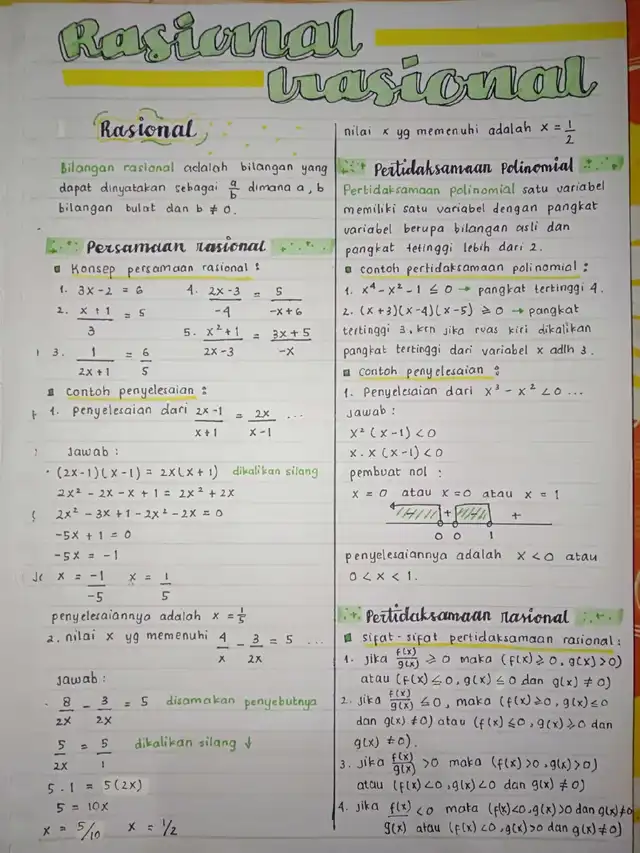 Rasional
Irasional
Rasional
Bilangan rasional adalah bilangan yang
dapat dinyatakan sebagai a/b dimana a, b
bilangan bulat dan b ≠ 0.
Persamaan rasional
Konsep persamaan rasional :
1. 3x - 2 = 6
2. (x + 1)/3 = 5
3. 1/(2x+1) = 6/5
4. (2x-3)/-4 = 5/(-x+6)
5. (x²+1)/(2x-3) = (3x+5)/-x
contoh penyelesaian :
1. Penyelesaian dari (2x-1)/(x+1) = 2x/(x-1) ...
Jawab :
(2x-1)(x-1) = 2x(x+1) dikalikan silang
2x² - 2x - x + 1 = 2x² + 2x
2x² - 3x + 1 - 2x² - 2x = 0
-5x + 1 = 0
-5x = -1
x = -1/-5 x = 1/5
penyelesaiannya adalah x = 1/5
2. nilai x yg memenuhi 4/x - 3/2x = 5 ...
Jawab :
8/2x - 3/2x = 5 disamakan penyebutnya
5/2x = 5/1 dikalikan silang ↓
5 . 1 = 5(2x)
5 = 10x
x = 5/10 x = 1/2
nilai x yg memenuhi adalah x = 1/2
Pertidaksamaan Polinomial
Pertidaksamaan polinomial satu variabel
memiliki satu variabel dengan pangkat
variabel berupa bilangan asli dan
pangkat tetinggi lebih dari 2.
contoh pertidaksamaan polinomial :
1. x⁴ - x² - 1 ≤ 0 → pangkat tertinggi 4.
2. (x+3)(x-4)(x-5) ≥ 0 → pangkat
tertinggi 3, krn jika ruas kiri dikalikan
pangkat tertinggi dari variabel x adlh 3.
Contoh penyelesaian :
1. Penyelesaian dari x³ - x² < 0 ...
Jawab :
x² (x-1) < 0
x . x (x-1) < 0
pembuat nol :
x = 0 atau x = 0 atau x = 1
+ +
0 0 1
penyelesaiannya adalah x < 0 atau
0 < x < 1.
Pertidaksamaan rasional
sifat-sifat pertidaksamaan rasional :
1. jika f(x)/g(x) ≥ 0 maka (f(x) ≥ 0, g(x) > 0)
atau (f(x) ≤ 0, g(x) ≤ 0 dan g(x) ≠ 0)
2. jika f(x)/g(x) ≤ 0, maka (f(x) ≥ 0, g(x) ≤ 0
dan g(x) ≠ 0) atau (f(x) ≤ 0, g(x) ≥ 0 dan
g(x) ≠ 0).
3. Jika f(x)/g(x) > 0 maka (f(x) > 0, g(x) > 0)
atau (f(x) < 0, g(x) < 0 dan g(x) ≠ 0)
4. jika f(x)/g(x) < 0 maka (f(x) < 0, g(x) > 0 dan g(x) ≠ 0
atau (f(x) < 0, g(x) > 0 dan g(x) ≠ 0)